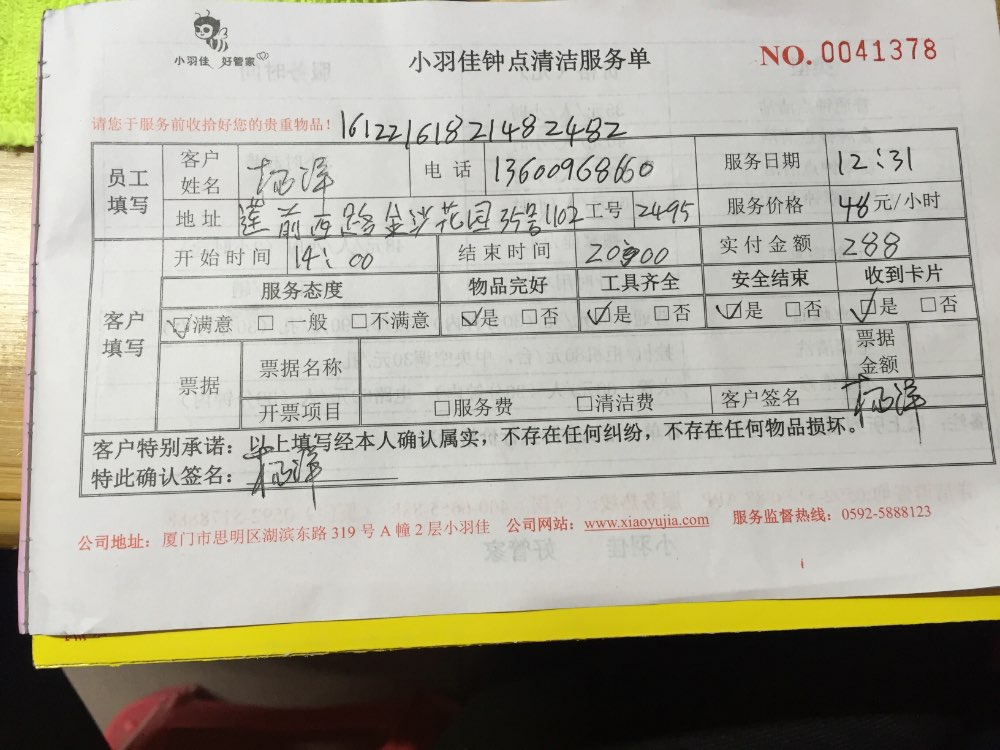 小羽佳 好管家
小羽佳钟点清洁服务单
NO. 0041378
请您于服务前收拾好您的贵重物品！
16122161821482482
员工填写 客户姓名 杨洋 电话 13600968660 服务日期 12:31
地址 莲前西路金沙花园35号1102 工号 2495 服务价格 48元/小时
客户填写 开始时间 14:00 结束时间 20:00 实付金额 288
服务态度 物品完好 工具齐全 安全结束 收到卡片
☑满意 □一般 □不满意 ☑是 □否 ☑是 □否 ☑是 □否 ☑是 □否
票据 票据名称 票据金额
开票项目 □服务费 □清洁费 客户签名 杨洋
客户特别承诺：以上填写经本人确认属实，不存在任何纠纷，不存在任何物品损坏。
特此确认签名：杨洋
公司地址：厦门市思明区湖滨东路 319 号 A 幢 2 层小羽佳 公司网站：www.xiaoyujia.com 服务监督热线：0592-5888123